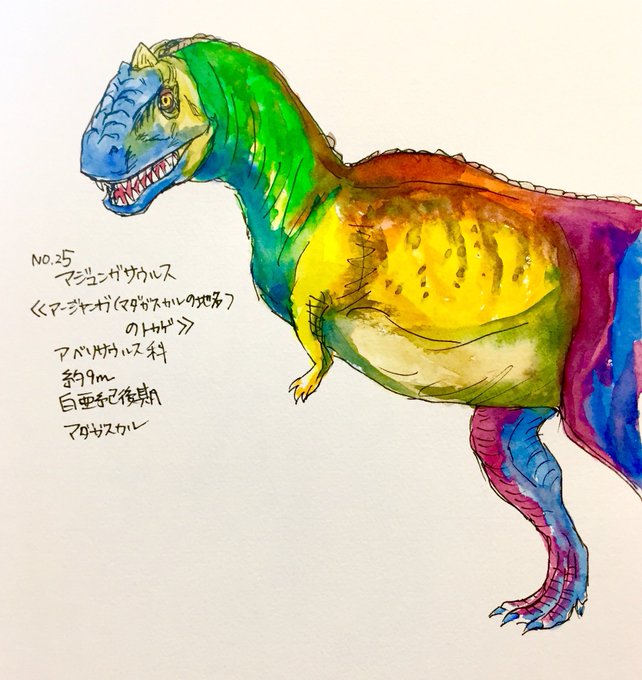 NO.25
マジュンガサウルス
≪マージャンガ(マダガスカルの地名)
のトカゲ≫
アベリサウルス科
約9m
白亜紀後期
マダガスカル